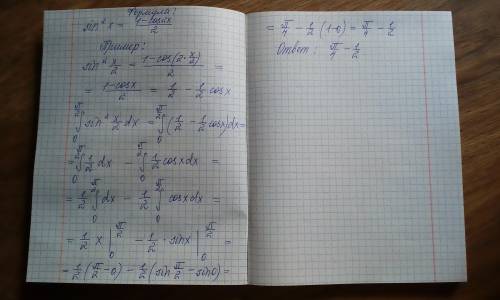 Формула:
sin²x = (1-cos2x)/2
Пример:
sin² x/2 = (1-cos(2·x/2))/2 =
= (1-cosx)/2 = 1/2 - 1/2 cosx
∫₀^(π/2) sin² x/2 dx = ∫₀^(π/2) (1/2 - 1/2 cosx)dx =
= ∫₀^(π/2) 1/2 dx - ∫₀^(π/2) 1/2 cosxdx =
= 1/2 ∫₀^(π/2) dx - 1/2 ∫₀^(π/2) cosxdx =
= 1/2 x |₀^(π/2) - 1/2 · sinx |₀^(π/2) =
= 1/2 (π/2 - 0) - 1/2 (sin π/2 - sin0) =
= π/4 - 1/2 (1-0) = π/4 - 1/2
Ответ: π/4 - 1/2